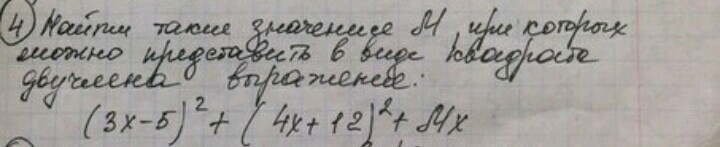 4) Найти такие значение М, при которых
можно представить в виде квадрата
двучлена выражение:
(3x-5)² + (4x+12)² + Мx